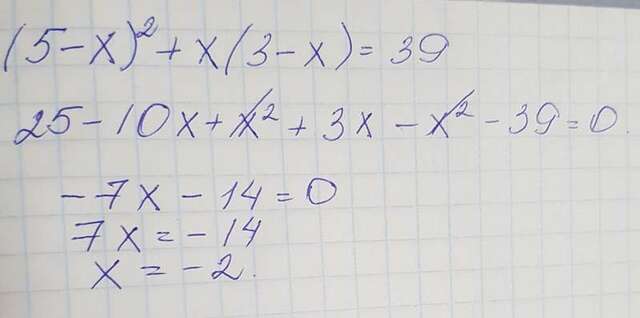 (5-x)²+x(3-x)=39
25-10x+x²+3x-x²-39=0.
-7x-14=0
7x=-14
x=-2.